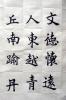 文德懷遠
人東越青
丘南踰丹